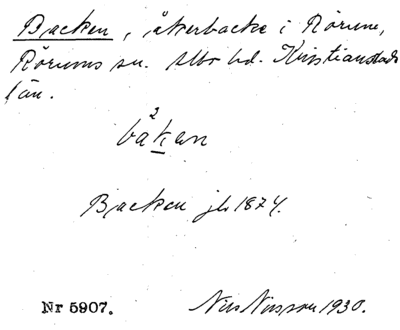 Backen, åkerbacke i Rörum,
Rörums sn. Albo hd. Kristianstads
län.
bàkan
Backen jb 1874.
Nr 5907. Nils Nilsson 1930.